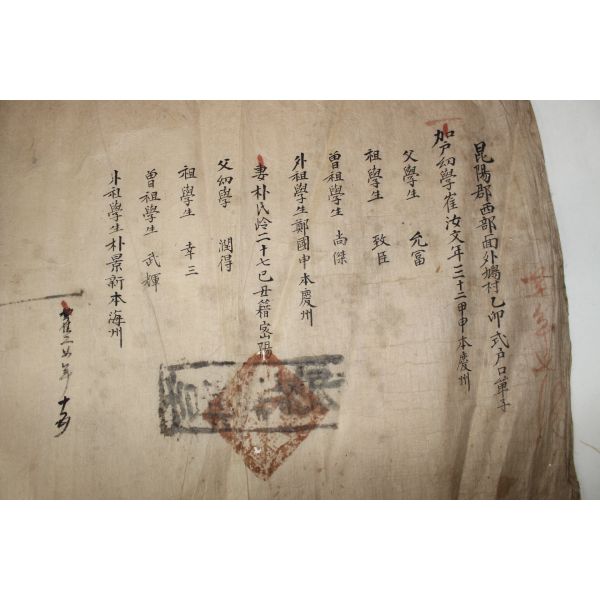 昆陽郡西部面外鳩村乙卯式戶口單子
加戶幼學崔汝文年三十二甲申本慶州
父學生 允冨
祖學生 致臣
曽祖學生 尚傑
外祖學生鄭國申本慶州
妻朴氏齡二十七己丑籍宻陽
父幼學 潤得
祖學生 幸三
曽祖學生 武輝
外祖學生朴景新本海州